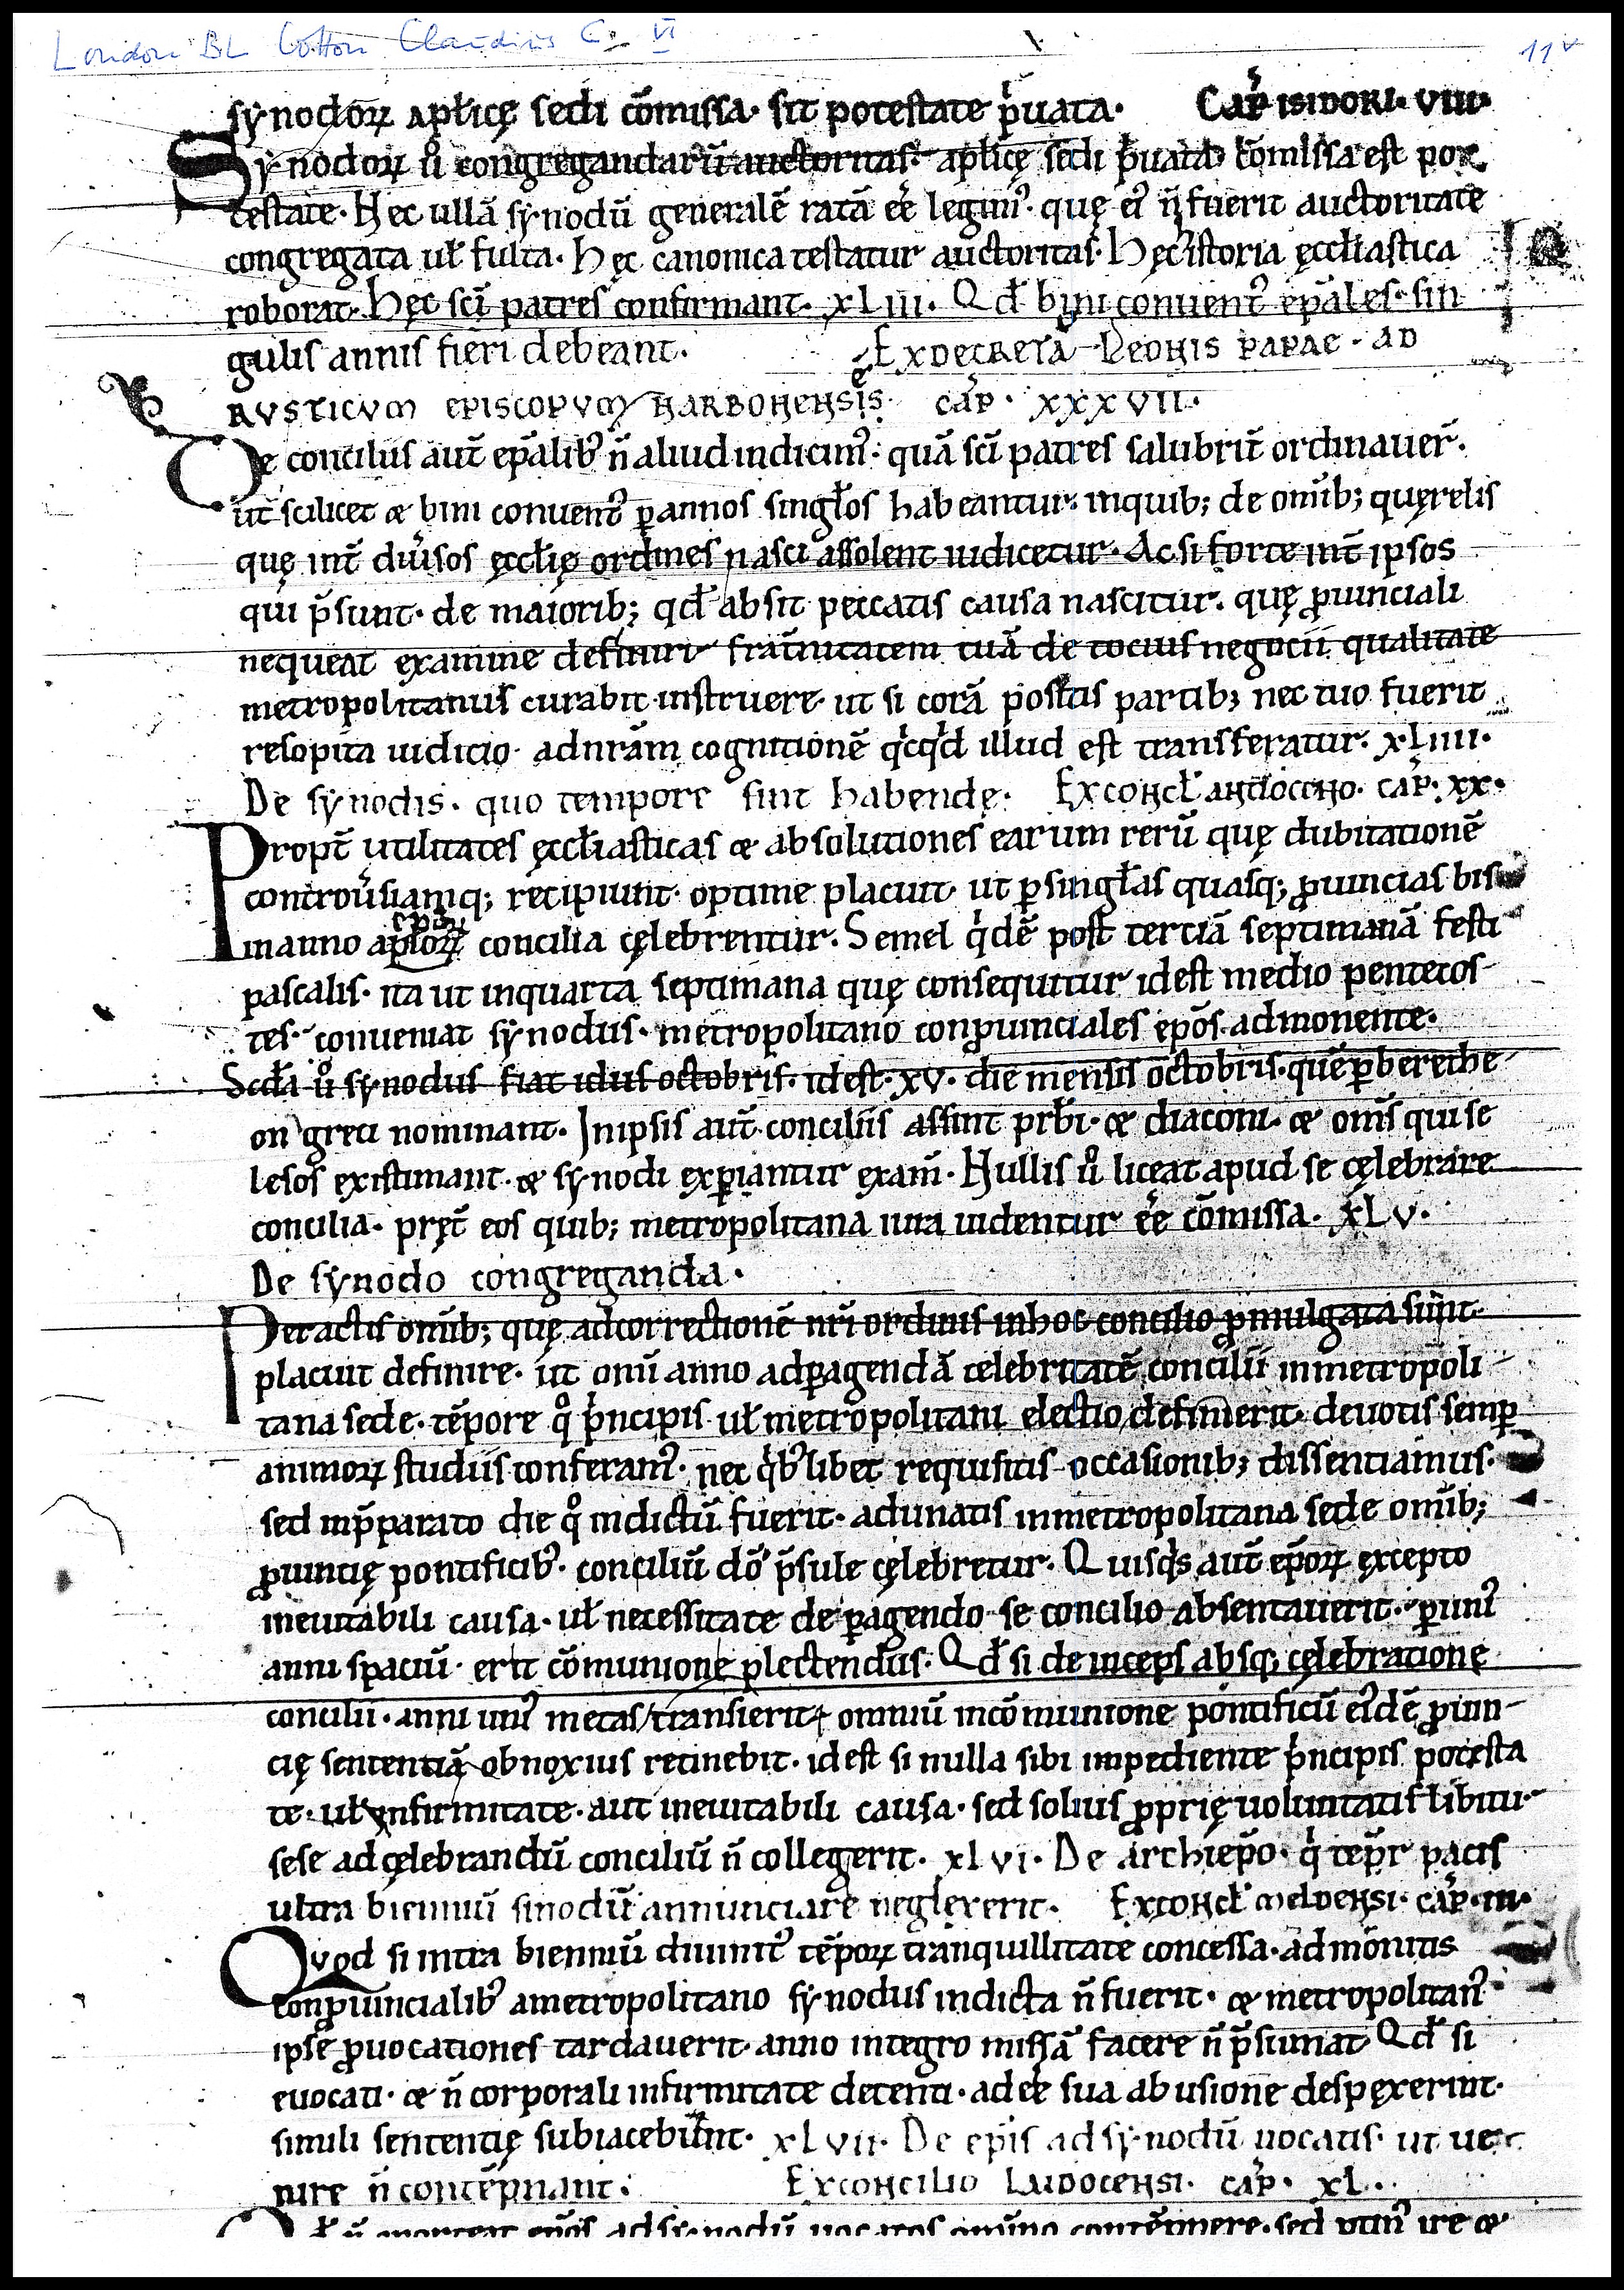 London BL Cotton Claudius C. VI 11v
synodoꝝ aplicę sedi cōmissa. sit potestate p̍uata. Cap̍ ISIDORI. VIII.
Synodoꝝ ů congregandarū auctoritas. aplicę sedi p̍uata cōmissa est po
testate. Nec ullā synodū generalē ratā eē legim᷒. quę ei᷒ n̄ fuerit auctoritate
congregata uł fulta. Hęc canonica testatur auctoritas. Hęc istoria ęcclłiastica
roborat. Hęc sc̄i patres confirmant. xLiii. Qd̄ bini conuent᷒ ep̄ales. sin
gulis annis fieri debeant. EX DECRETA LEONIS PAPAE. AD
RVSTICVM EPISCOPVM NARBONENSIS. CAP̍. XXXVII.
De conciliis aut̄ ep̄alib᷒ n̄ aliud indicim᷒. quā sc̄i patres salubrit̄ ordinauer̄.
ut scilicet æ bini conuent᷒ ꝑ annos singłos habeantur. in quib; de omīb; quęrelis
quę int̄ diu̍sos ęcclię ordines nasci assolent iudicetur. Ac si forte int̄ ipsos
qui p̄sunt. de maiorib; qd̄ absit peccatis causa nascitur. quę ꝓuinciali
nequeat examine definiri frat̄nitatem tuā de tocius negocii qualitate
metropolitanus curabit instruere. ut si corā positis partib; nec tuo fuerit
resopita iudicio. ad nr̄am cognitionē q̍cq̍d illud est transferatur. xLiiii.
De synodis. quo tempore sint habendę. EX CONCL̄ ANTIOCENO. CAP̍. XX.
Propt̄ utilitates ęccłiasticas æ absolutiones earum rerū quę dubitationē
controu̍siamq; recipiunt. optime placuit ut ꝑ singłas quasq; ꝓuincias bis
in anno apłoꝝ ep̄oꝝ concilia cęlebrentur. Semel q̍dē post terciā septimanā festi
pascalis. ita ut in quarta septimana quę consequitur id est medio pentecos-
tes. conueniat synodus. metropolitano conꝓuinciales ep̄os admonente.
Scd̄a ů synodus fiat idus octobris. id est. xv. die mensis octobris. quē ꝑberethe-
on greci nominant. In ipsis aut̄ conciliis assint prb̄i. æ diaconi. æ om̄s qui se
lesos existimant. æ synodi exꝑiantur exam̄. Nullis ů liceat apud se cęlebrare
concilia. pręt̄ eos quib; metropolitana iura uidentur eē cōmissa. xLv.
De synodo congreganda.
Peractis omīb; quę ad correctionē nr̄i ordinis in hoc concilio ꝓmulgata sunt.
placuit definire. ut omī anno ad ꝑagendā celebritatē concilii in metropoli
tana sede. tēpore qͦ p̍ncipis uł metropolitani electio definierit. deuotis semꝑ
animoꝝ studiis conferam᷒. nec q̍b᷒libet requisitis occasionib; dissentiamus.
sed inp̄parato die qͦ indictū fuerit. adunatis in metropolitana sede omīb;
ꝓuincię pontificib᷒. conciliū dō p̄sule cęlebretur. Quisq̍s aut̄ ep̄oꝝ excepto
ineuitabili causa. uł necessitate de ꝑagendo se concilio absentauerit. ꝑ uni᷒
anni spaciū. erit cōmunione plectendus. Qd̄ si deinceps absq; cęlebratione
concilii. anni uni᷒ metas transierit. omniū in cōmunione pontificū ei᷒dē ꝓuin-
cię sententiā obnoxius retinebit. id est si nulla sibi impediente p̍ncipis potesta
te. uł infirmitate. aut ineuitabili causa. sed solius ꝓprię uoluntatis libitu
sese ad cęlebrandū conciliū n̄ collegerit. xLvi. De archiep̄o. q̍ tep̄r pacis
ultra bienniū sinodū annunciare neglexerit. EX CONCL̄ MELDENSI. CAP̍. III.
Quod si intra bienniū diuinit᷒ tēpoꝝ tranquillitate concessa. admonitis
conꝓuincialib᷒ a metropolitano synodus indicta n̄ fuerit. æ metropolitan᷒
ipse ꝓuocationes tardauerit. anno integro missā facere n̄ p̄sumat. Qd̄ si
euocati. æ n̄ corporali infirmitate detenti. adeē sua abusione despexerint.
simili sentencię subiacebunt. xLvii. De epis ad synodū uocatis ut ue
nire n̄ contēpnant. EX CONCILIO LAIDOCENSI. CAP̍. XL.